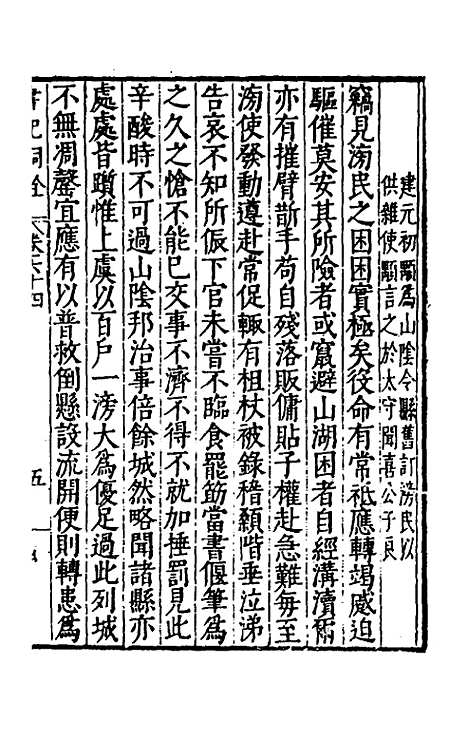 建元初顒爲山陰令縣舊訂滂民以
供雜使顒言之於太守聞喜公子良
竊見滂民之困困實極矣役命有常祗應轉竭蹙迫
驅催莫安其所險者或竄避山湖困者自經溝瀆爾
亦有摧臂斮手苟自殘落販傭貼子權赴急難每至
滂使發動遵赴常促輙有柤杖被錄稽顙階垂泣涕
告哀不知所倀下官未嘗不臨食罷筯當書偃筆爲
之久之愴不能巳交事不濟不得不就加捶罰見此
辛酸時不可過山陰邦治事倍餘城然略聞諸縣亦
處處皆躓惟上虞以百戶一滂大爲優足過此列城
不無凋罄宜應有以普救倒懸設流開便則轉患爲
書記洞詮 卷六十四 五